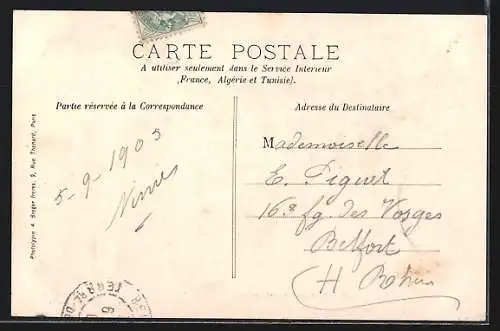 CARTE POSTALE
A utiliser seulement dans le Service Intérieur
(France, Algérie et Tunisie).
Partie réservée à la Correspondance
Adresse du Destinataire
5-9-1905
Mademoiselle
E. Piguet
16ᵉ fg. des Vosges
Belfort
H Rhin
Phototypie A. Breger frères, 9, Rue Thénard, Paris